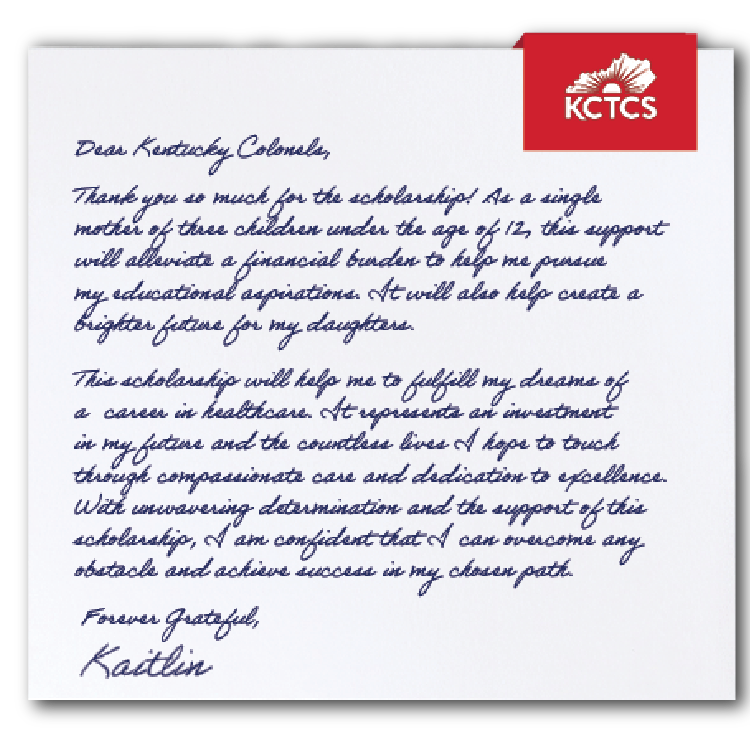 KCTCS
Dear Kentucky Colonels,
Thank you so much for the scholarship! As a single
mother of three children under the age of 12, this support
will alleviate a financial burden to help me pursue
my educational aspirations. It will also help create a
brighter future for my daughters.
This scholarship will help me to fulfill my dreams of
a career in healthcare. It represents an investment
in my future and the countless lives I hope to touch
through compassionate care and dedication to excellence.
With unwavering determination and the support of this
scholarship, I am confident that I can overcome any
obstacle and achieve success in my chosen path.
Forever Grateful,
Kaitlin